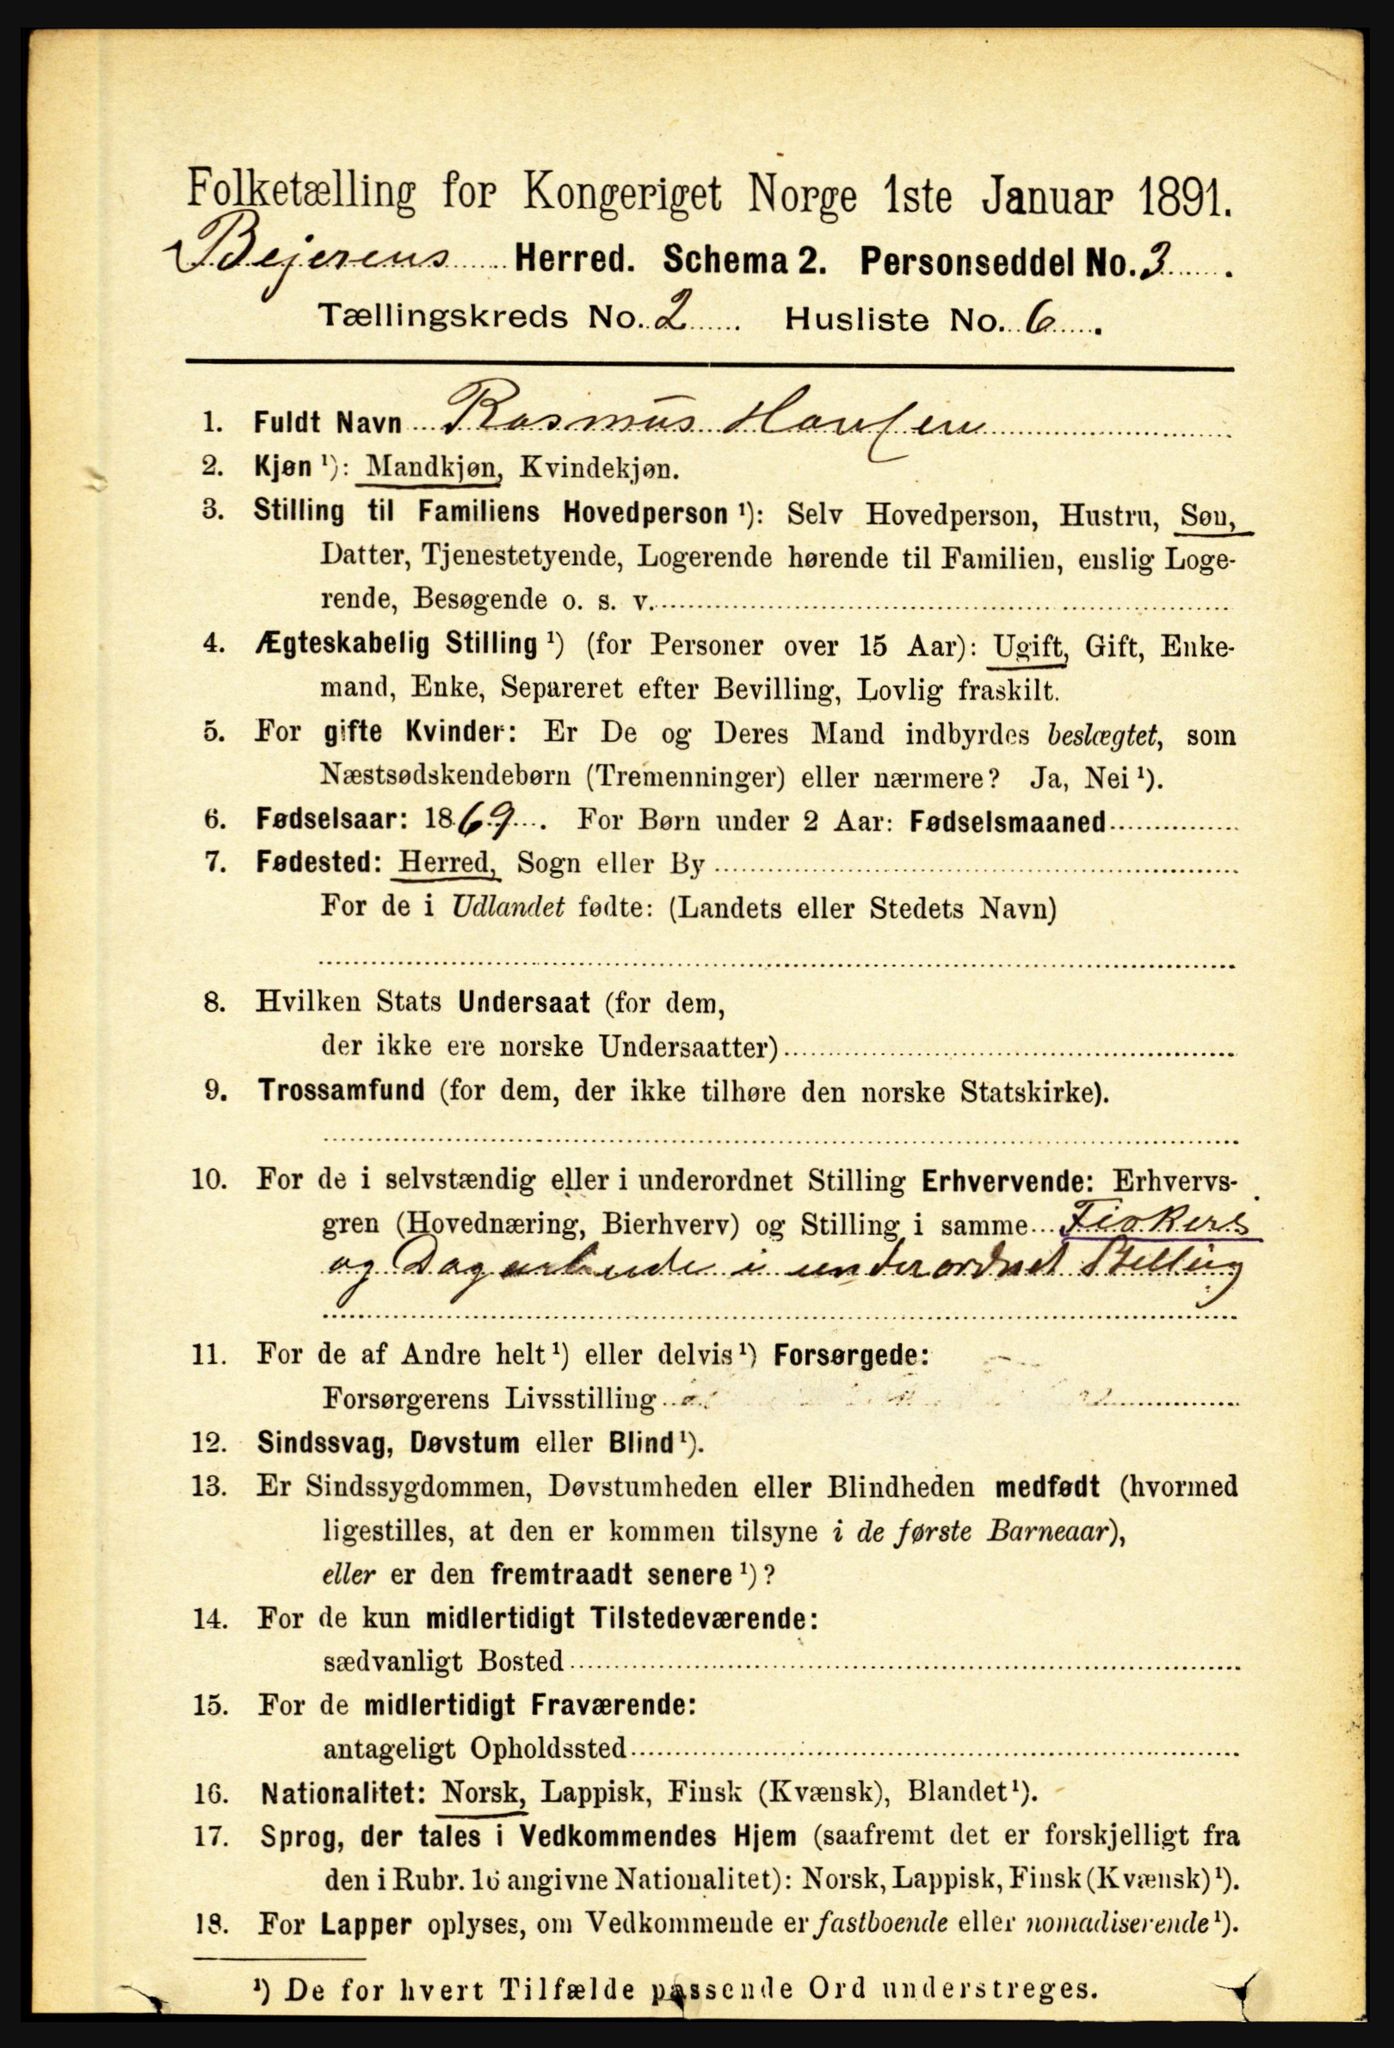 Folketælling for Kongeriget Norge 1ste Januar 1891.
Bejerens Herred. Schema 2. Personseddel No. 3.
Tællingskreds No. 2 Husliste No. 6.
1. Fuldt Navn Rasmus Hansen
2. Kjøn ¹): Mandkjøn, Kvindekjøn.
3. Stilling til Familiens Hovedperson ¹): Selv Hovedperson, Hustru, Søn,
Datter, Tjenestetyende, Logerende hørende til Familien, enslig Loge-
rende, Besøgende o. s. v.
4. Ægteskabelig Stilling ¹) (for Personer over 15 Aar): Ugift, Gift, Enke-
mand, Enke, Separeret efter Bevilling, Lovlig fraskilt.
5. For gifte Kvinder: Er De og Deres Mand indbyrdes beslægtet, som
Næstsødskendebørn (Tremenninger) eller nærmere? Ja, Nei ¹).
6. Fødselsaar: 1869. For Børn under 2 Aar: Fødselsmaaned
7. Fødested: Herred, Sogn eller By
For de i Udlandet fødte: (Landets eller Stedets Navn)
8. Hvilken Stats Undersaat (for dem,
der ikke ere norske Undersaatter)
9. Trossamfund (for dem, der ikke tilhøre den norske Statskirke).
10. For de i selvstændig eller i underordnet Stilling Erhvervende: Erhvervs-
gren (Hovednæring, Bierhverv) og Stilling i samme Fiskeri
og Dagarbeide i underordnet Stilling
11. For de af Andre helt ¹) eller delvis ¹) Forsørgede:
Forsørgerens Livsstilling
12. Sindssvag, Døvstum eller Blind ¹).
13. Er Sindssygdommen, Døvstumheden eller Blindheden medfødt (hvormed
ligestilles, at den er kommen tilsyne i de første Barneaar),
eller er den fremtraadt senere ¹)?
14. For de kun midlertidigt Tilstedeværende:
sædvanligt Bosted
15. For de midlertidigt Fraværende:
antageligt Opholdssted
16. Nationalitet: Norsk, Lappisk, Finsk (Kvænsk), Blandet ¹).
17. Sprog, der tales i Vedkommendes Hjem (saafremt det er forskjelligt fra
den i Rubr. 16 angivne Nationalitet): Norsk, Lappisk, Finsk (Kvænsk) ¹).
18. For Lapper oplyses, om Vedkommende er fastboende eller nomadiserende ¹).
¹) De for hvert Tilfælde passende Ord understreges.